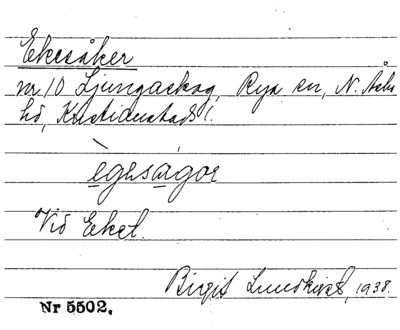 Ekesåker
nr 10 Ljungaskog, Rya sn, N. Åsbo
hd, Kristianstads l.
ègeságor
Vid Eket.
Birgit Lundkvist, 1938.
Nr 5502.